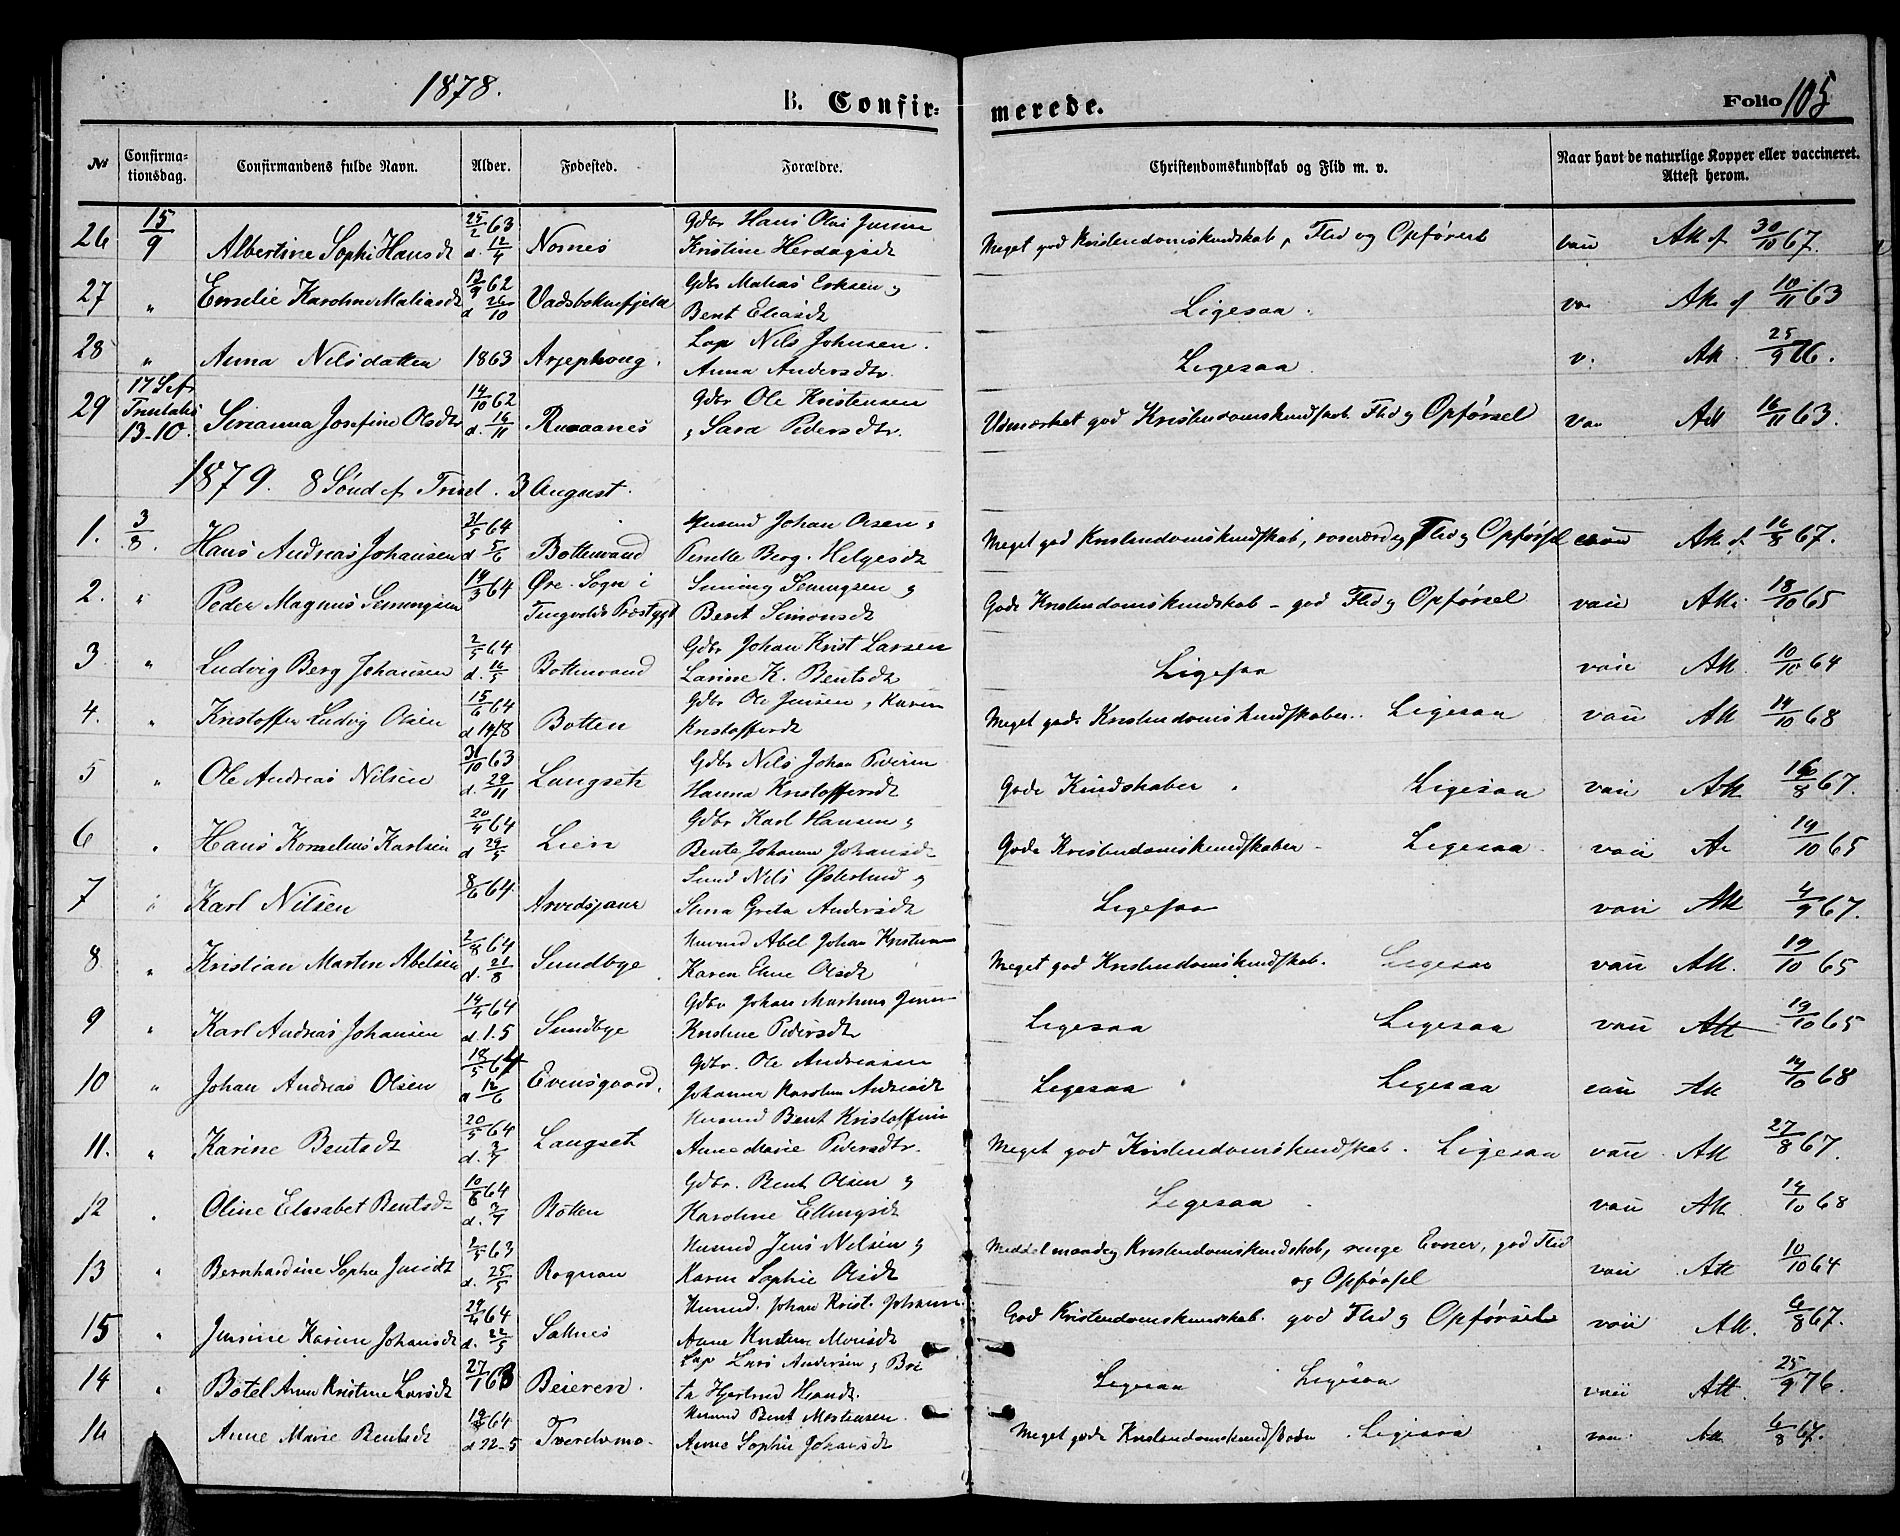 1878.
B. Confirmerede.
Folio 105
No
Confirmationsdag.
Confirmandens fulde Navn.
Alder.
Fødested.
Forældre.
Christendomskundskab og Flid m. v.
Naar havt de naturlige Kopper eller vaccineret. Attest herom.
26 15/9 Albertine Sophi Hansdt 25/2 63 d. 12/4 Nornes Gdbr Hans Olai Kristine Herdagsdt Meget god Kristendomskundskab, Flid og Opførsel Att af 30/10 67.
27 " Emelie Karoline Matiasdt 13/9 62 d 26/10 Gdbr Matias Eriksen og Bent Eliasdt Ligesaa. Att af 10/11 63
28 " Anna Nilsdatter 1863 Arjephoug. Lap Nils Johnsen. Anna Andersdtr. Ligesaa v. Att. 25/9 76.
29 13-10. Serianna Josefine Olsdtr 14/10 62 d. 16/11 Rusaanes Gdbr Ole Kristensen , Sara Pedersdtr. Udmærket god Kristendomskundskab Flid og Opførsel Att 16/11 63.
1879. 8 Sønd ef Trind. 3 August.
1. 3/8. Hans Andreas Johansen 31/5 64 d 5/6 Botnvand Husmd Johan Olsen , Pernille Berg. Helgesdt Meget god Kristendomskundskab, Flid og Opførsel Att af 16/8 67.
2. " Peder Magnus Semingsen 14/3 64 Øre Sogn i Tingvolds Præstgjd Seming Semingsen og Berit Simonsdt Gode Kristendomskundskab - god Flid og Opførsel vaci Att. 18/10 65
3 " Ludvig Berg Johansen 2/5 64 d. 16/5 Botnvand Gdbr Johan Krist Larsen Larine K. Bentsdt Ligesaa vaci Att. 10/10 64
4. " Kristoffer Ludvig Olsen 15/6 64 Botten Gdbr Ole Jensen , Karen Kristofferdt Meget gode Kristendomskundskaber. Ligesaa vaci Att 14/10 68
5 " Ole Andreas Nilsen 31/10 63 d. 29/11 Langset Gdbr Nils Johan Hanna Kristoffersdt Gode Kundskaber. Ligesaa vaci Att 16/8 67.
6 " Hans Kornelius Karlsen 20/4 64 d 29/5 Lien Gdbr Karl Hansen og Bente Johanna Johansdt Gode Kristendomskundskaber - Ligesaa vaci 14/10 65
7 " Karl Nilsen 8/6 64. Arvedsjaur Nils Østerlund og Greta Andersdt Ligesaa vaci Att 4/9 67.
8 " Kristian Martin Abelsen 2/8 64 d. 21/8 Sundbye Husmd Abel Johan Karen Olsdt Meget god Kristendomskundskab. Ligesaa vaci Att. 19/10 65
9 " Karl Andreas Johansen 14/4 64 d. 1.5 Sundbye Gdbr Johan Martinus Kristine Pedersdt Ligesaa Ligesaa vaci Att 19/10 65
10 " Johan Andreas Olsen 18/5 64 d 12/6 Evensgaard. Gdbr. Ole Andreasen Johanna Karolin Andreasdt Ligesaa Ligesaa vaci Att 14/10 68
11. " Karine Bentsdt 20/5 64 Langset Husmd Bent Kristoffersen Anne Marie Pedersdtr. Meget god Kristendomskundskab. Ligesaa vaci Att 27/8 67.
12 " Oline Elisabet Bentsdt 10/6 64 Botten Gdbr. Bent Olsen og Karoline Ellingsdt Ligesaa vaci Att. 14/10 68
13 " Bernhardine Sophie Jensdt 2/5 63 d. 25/5 Rognan Husmd Jens Nilsen og Karen Sophie Olsdt Middelmaadig Kristendomskundskab, ringe Evner, god Flid og Opførsel vaci Att 10/10 64
15 " Jensine Karine Johansdt 29/4 64 d. 22/5 Saltnes Husmd. Johan Krist. Johans Anne Kristine Monsdt God Kristendomskundskab. god Flid og Opførsel vaci Att. 6/8 67.
14 " Botel Anna Kristine Larsdt 27/1 63 Beieren Lap Lars Andersen , Hjertrud Ligesaa Ligesaa vaci Att. 25/9 76.
16 Anne Marie Bentsdt 19/4 64 d 22-5 Tverdvmo. Husmd Bent Mortensen. Anne Sophie Johansdt Meget gode Ligesaa Att 6/8 67.